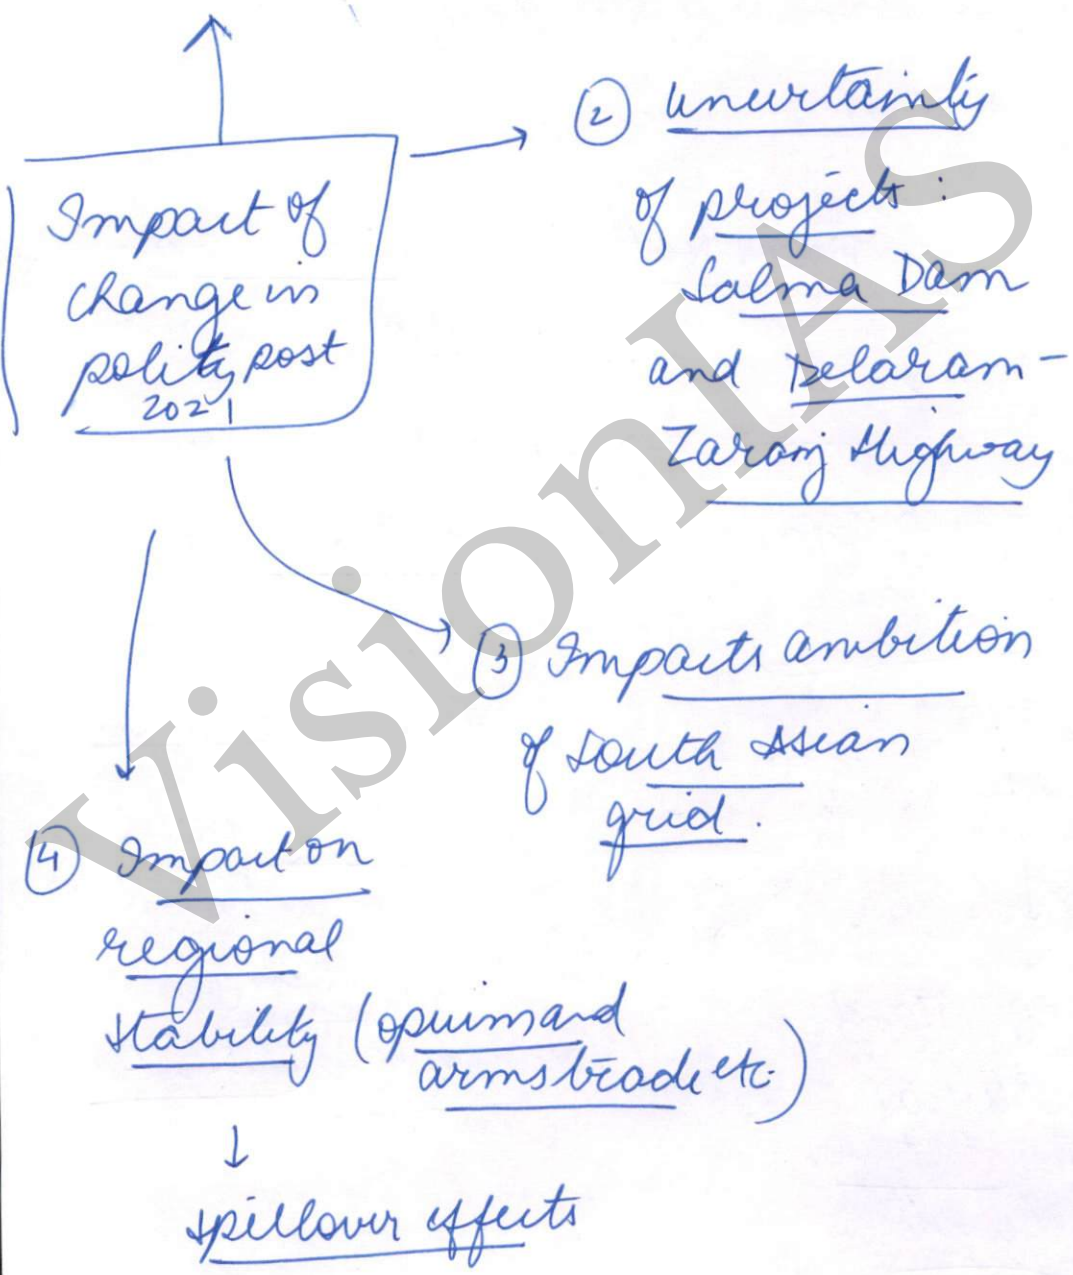 Impact of
change in
polity post
2021
② uncertainty
of projects :
Salma Dam
and Delaram-
Zaranj Highway
③ Impacts ambition
of South Asian
grid.
④ Impact on
regional
stability (opuim and
arms trade etc.)
↓
spillover effects
VisionIAS